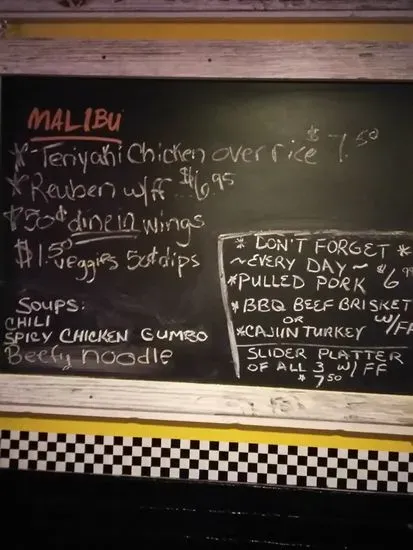 MALIBU
* Teriyaki Chicken over rice $7.50
* Reuben w/ff $6.95
* 50¢ dine in wings
$1.50 veggies 50¢ dips
SOUPS:
CHILI
SPICY CHICKEN GUMBO
Beefy noodle
* DON'T FORGET *
~EVERY DAY~
*PULLED PORK
* BBQ BEEF BRISKET
OR W/FF
*CAJUN TURKEY
SLIDER PLATTER
OF ALL 3 W/ FF
$7.50